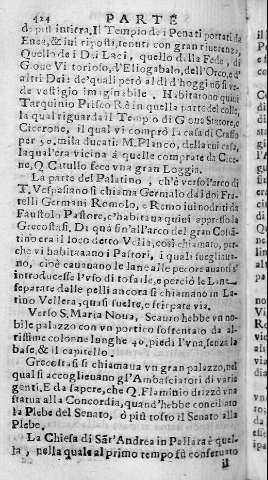 424 PARTE
de più intirra, Il Tempio de i Penati portati da
Enea, & iui riposti, tenuti con gran riuerenza,
Quello de i Dei Laci, quello della Fede, di
Gioue Vitorioso, d'Eliogabalo, dell'Orco, e d'
altri Dei: de' quali però al dì d'hoggi nõ si ve-
de vestigio imaginabile. Habitarono quiui
Tarquinio Prisco Rè in quella parte del colle,
la qual riguarda il Tempio di Gioue Statore, e
Cicerone, il qual vi comprò la casa di Crasso
per 50. mila ducati. M. Flanco, della cui casa,
laqual'era vicina à quelle comprate da Cice-
ne, Q Catullo fece vna gran Loggia.
La parte del Palatino, ch'è verso l'arco di
T. Vespasiano si chiama Germalo dal doi Fra-
telli Germani Romolo, e Remo iui nodriti da
Faustolo Pastore, c'habitaua quiui appresso la
Grecostasi. Di quà fin'all'arco del gran Costã-
tino era il loco detto Velia, così chiamato, per-
che vi habitauano i Pastori, i quali suegliaua-
no, cioè cauauano le lane alle pecore auanti s'
introducesse l'vso di tosarle, e perciò le Lane
separate dalle pelli ancora si chiamano in La-
tino Vellera, quasi suelte, e stirpate via.
Verso S. Maria Noua, Scauro hebbe vn no-
bile palazzo con vn portico sostentato da al-
tissime colonne lunghe 40. piedi l'vna, senza la
base, & il capitello.
Grecostasi si chiamaua vn gran palazzo, nel
qual si accoglieuano gl'Ambasciatori di varie
genti, E da sapere, che Q. Flaminio drizzò vna
statua alla Concordia, quand'hebbe conciliato
la Plebe del Senato, ò più tosto il Senato alla
Plebe.
La Chiesa di Sãt'Andrea in Pallara è quel-
la, nella quale al primo tempo fù conseruato
il